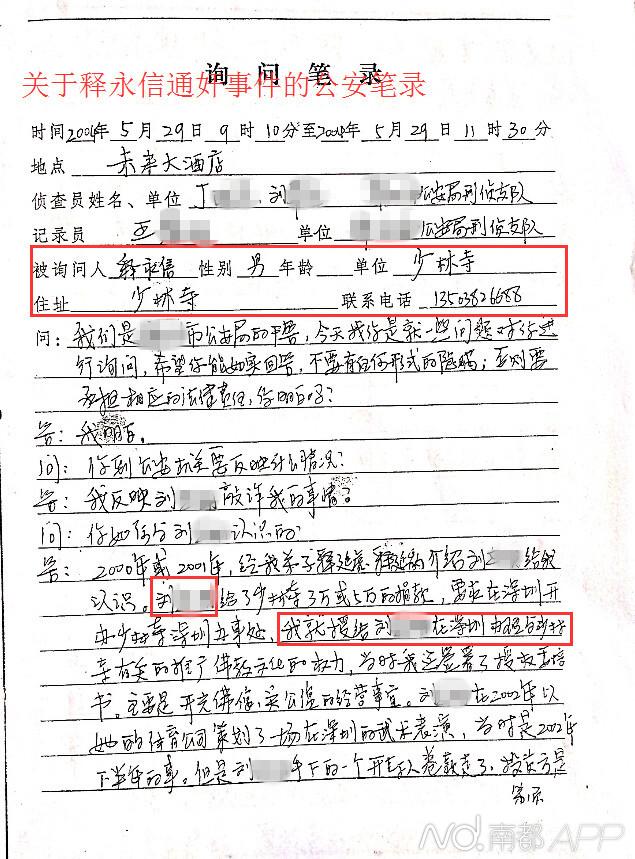 询问笔录
关于释永信通奸事件的公安笔录
时间2004年5月29日9时10分至2004年5月29日11时30分
地点 未来大酒店
侦查员姓名、单位 丁 刘 公安局刑侦支队
记录员 王 单位 公安局刑侦支队
被询问人 释永信 性别 男 年龄 单位 少林寺
住址 少林寺 联系电话 13503826688
问:我们是 市公安局的干警,今天找你是就一些问题对你进
行询问,希望你能如实回答,不要有任何形式的隐瞒;否则要
承担相应的法律责任,你明白吗?
答:我明白。
问:你到公安机关要反映什么情况?
答:我反映刘 敲诈我的事情?
问:你如何与刘 认识的
答:2000年或2001年,经我弟子释延 介绍刘 给我
认识。刘 给了少林寺3万或5万的捐款,要在深圳开
办少林寺深圳办事处,我就授给刘 在深圳办理与少林
寺有关的推广佛教文化的权力,当时我还签署了授权委培
书。主要是开光佛像,卖公 的经营事宜。刘 在2002年以
她的体育公司策划了一场在深圳的武术表演,当时是2002年
下半年的事。但是刘 手下的一个开车人卷款走了,投资方是
N.南都APP